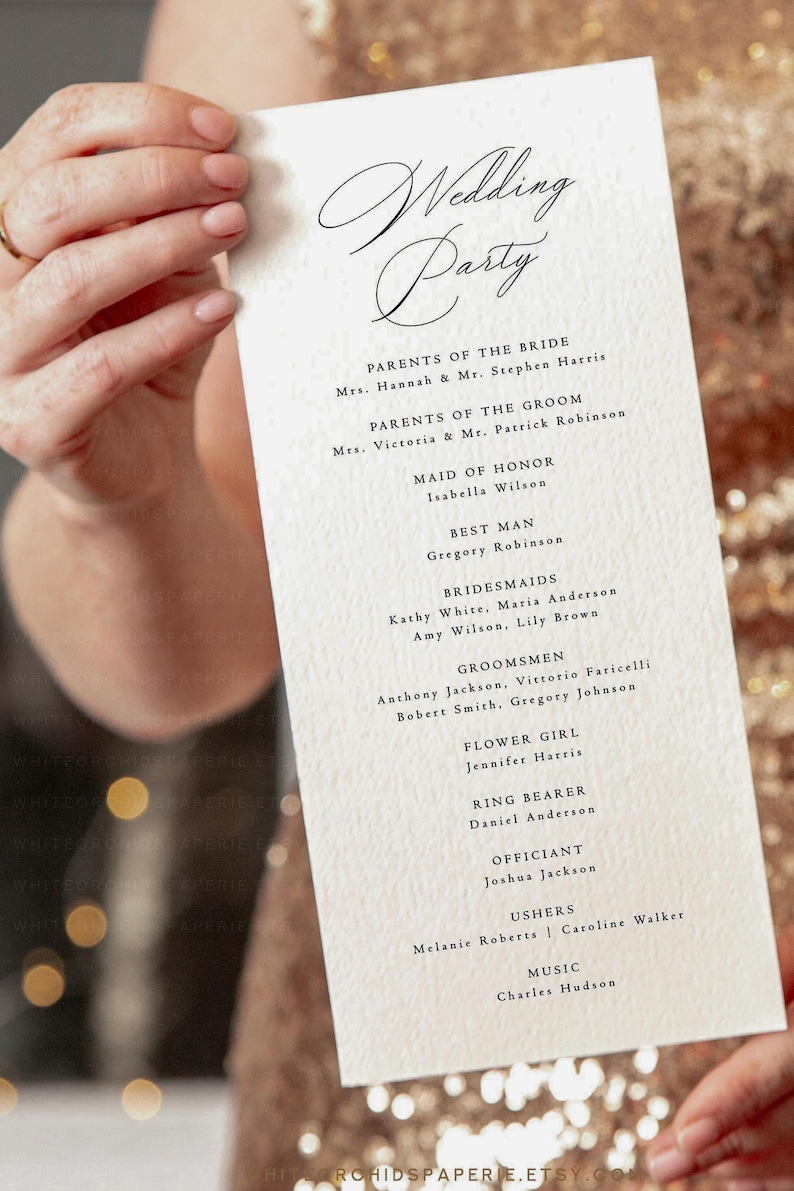 Wedding
Party
PARENTS OF THE BRIDE
Mrs. Hannah & Mr. Stephen Harris
PARENTS OF THE GROOM
Mrs. Victoria & Mr. Patrick Robinson
MAID OF HONOR
Isabella Wilson
BEST MAN
Gregory Robinson
BRIDESMAIDS
Kathy White, Maria Anderson
Amy Wilson, Lily Brown
GROOMSMEN
Anthony Jackson, Vittorio Faricelli
Bobert Smith, Gregory Johnson
FLOWER GIRL
Jennifer Harris
RING BEARER
Daniel Anderson
OFFICIANT
Joshua Jackson
USHERS
Melanie Roberts | Caroline Walker
MUSIC
Charles Hudson
WHITEORCHIDSPAPERIE.ETSY.COM